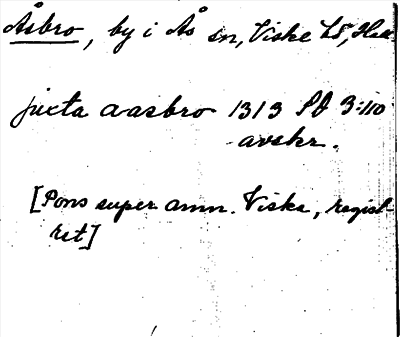 Åsbro, by i Ås sn, Viske hd, Hall.
juxta aasbro 1313 SD 3:110
avskr.
[Pons super amn. Viska, regist-
ret]